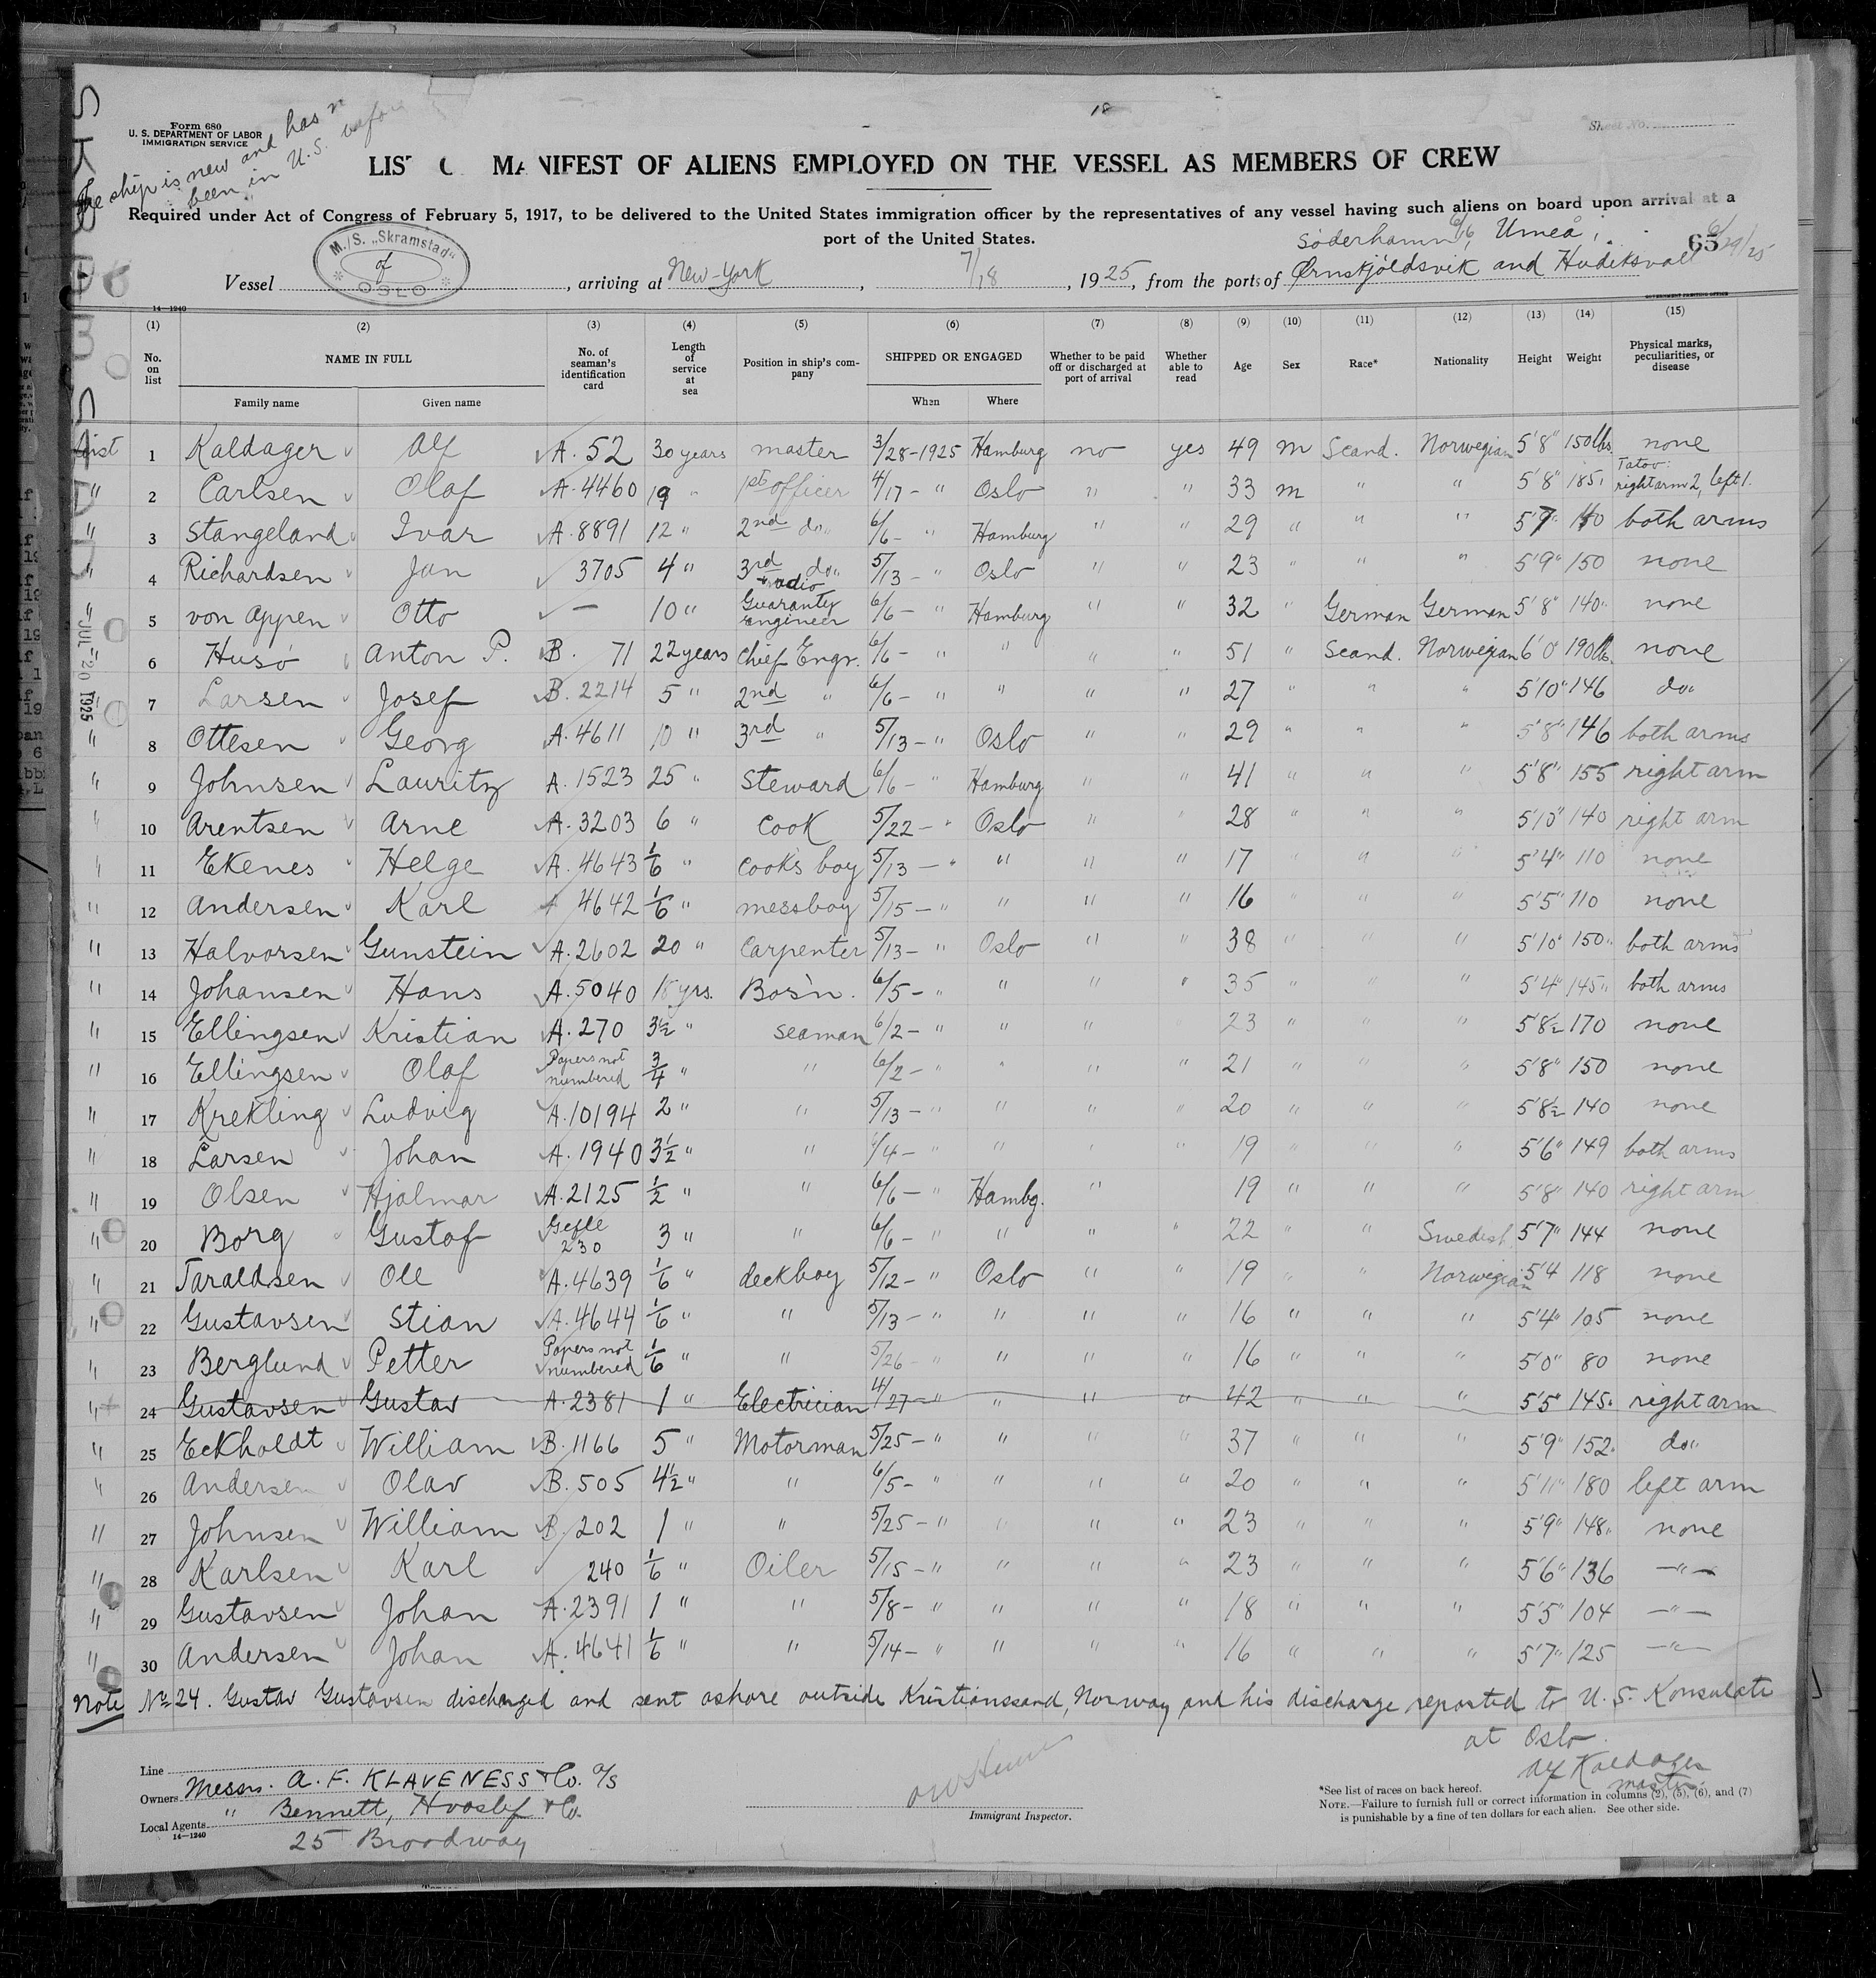 18
Form 680
U. S. DEPARTMENT OF LABOR
IMMIGRATION SERVICE
Sheet No.
The ship is new and has n
been in U.S. before
LIST O MANIFEST OF ALIENS EMPLOYED ON THE VESSEL AS MEMBERS OF CREW
Required under Act of Congress of February 5, 1917, to be delivered to the United States immigration officer by the representatives of any vessel having such aliens on board upon arrival at a
port of the United States.
Söderhamn 6/6, Umeå, 6/29/25
65
Vessel M./S. „Skramstad" of OSLO, arriving at New-York, 7/18, 1925, from the ports of Ørnskjöldsvik and Hudiksvall
14—1240
(1) (2) (3) (4) (5) (6) (7) (8) (9) (10) (11) (12) (13) (14) (15)
No. on list NAME IN FULL Family name Given name No. of seaman's identification card Length of service at sea Position in ship's company SHIPPED OR ENGAGED When Where Whether to be paid off or discharged at port of arrival Whether able to read Age Sex Race* Nationality Height Weight Physical marks, peculiarities, or disease
1 Kaldager Alf A. 52 30 years master 3/28-1925 Hamburg no yes 49 m Scand. Norwegian 5'8" 150 lbs. none
" 2 Carlsen Olaf A. 4460 19 " 1st officer 4/17- " Oslo " " 33 m " " 5'8" 185 Tatov: right arm 2, left 1.
" 3 Stangeland Ivar A. 8891 12 " 2nd do" 6/6- " Hamburg " " 29 " " " 5'9" 140 both arms
" 4 Richardsen Jan 3705 4 " 3rd do" + radio 5/13- " Oslo " " 23 " " " 5'9" 150 none
" 5 von Appen Otto — 10 " Guaranty Engineer 6/6- " Hamburg " " 32 " German German 5'8" 140 none
" 6 Husö Anton P. B. 71 22 years Chief Engr. 6/6- " " " " 51 " Scand. Norwegian 6'0" 190 lb. none
" 7 Larsen Josef B. 2214 5 " 2nd " 6/6- " " " " 27 " " " 5'10" 146 do"
" 8 Ottesen Georg A. 4611 10 " 3rd " 5/13- " Oslo " " 29 " " " 5'8" 146 both arms
" 9 Johnsen Lauritz A. 1523 25 " Steward 6/6- " Hamburg " " 41 " " " 5'8" 155 right arm
" 10 Arentsen Arne A. 3203 6 " Cook 5/22- " Oslo " " 28 " " " 5'10" 140 right arm
" 11 Ekenes Helge A. 4643 1/6 " cooks boy 5/13- " " " " 17 " " " 5'4" 110 none
" 12 Andersen Karl A 4642 1/6 " messboy 5/15- " " " " 16 " " " 5'5" 110 none
" 13 Halvorsen Gunstein A. 2602 20 " Carpenter 5/13- " Oslo " " 38 " " " 5'10" 150 both arms
" 14 Johansen Hans A. 5040 18 yrs. Bos'n. 6/5- " " " " 35 " " " 5'4" 145 both arms
" 15 Ellingsen Kristian A. 270 3½ " seaman 6/2- " " " 23 " " " 5'8½ 170 none
" 16 Ellingsen Olaf Papers not numbered 3/4 " " 6/2- " " " " 21 " " 5'8" 150 none
" 17 Krekling Ludvig A. 10194 2 " " 5/13- " " " " 20 " " " 5'8½ 140 none
" 18 Larsen Johan A. 1940 3½ " " 6/4- " " " " 19 " " " 5'6" 149 both arms
" 19 Olsen Hjalmar A. 2125 ½ " " 6/6- " Hambg. " 19 " " " 5'8" 140 right arm
" 20 Borg Gustaf Gefle 230 3 " " 6/6- " " " " 22 " " Swedish 5'7" 144 none
" 21 Taraldsen Ole A. 4639 1/6 " deckboy 5/12- " Oslo " " 19 " " Norwegian 5'4 118 none
" 22 Gustavsen Stian A. 4644 1/6 " " 5/13- " " " " 16 " " " 5'4" 105 none
" 23 Berglund Petter Papers not numbered 1/6 " " 5/26- " " " " 16 " " " 5'0" 80 none
" 24 Gustavsen Gustav A. 2381 1 " Electrician 4/27- " " " " 42 " " " 5'5" 145 right arm
" 25 Eckholdt William B. 1166 5 " Motorman 5/25- " " " " 37 " " " 5'9" 152 do"
" 26 Andersen Olav B. 505 4½ " " 6/5- " " " " 20 " " " 5'11" 180 left arm
" 27 Johnsen William B. 202 1 " " 5/25- " " " " 23 " " " 5'9" 148 none
" 28 Karlsen Karl 240 1/6 " Oiler 5/15- " " " " 23 " " " 5'6" 136 —"—
" 29 Gustavsen Johan A. 2391 1 " " 5/8- " " " " 18 " " " 5'5" 104 —"—
" 30 Andersen Johan A. 4641 1/6 " " 5/14- " " " " 16 " " " 5'7" 125 —"—
JUL 20 1925
Note No 24. Gustav Gustavsen discharged and sent ashore outside Kristianssand, Norway and his discharge reported to U. S. Konsulate
at Oslo.
Alf Kaldager
master
Line
Owners Messrs. A. F. KLAVENESS & Co. A/S
Local Agents " Bennett, Hvoslef & Co.
14—1240
25 Broadway
Immigrant Inspector.
*See list of races on back hereof.
NOTE.—Failure to furnish full or correct information in columns (2), (5), (6), and (7)
is punishable by a fine of ten dollars for each alien. See other side.